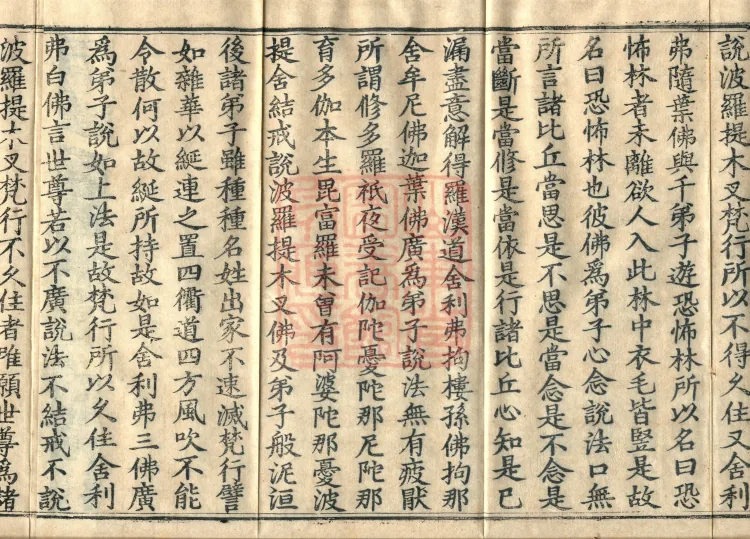 說波羅提木叉梵行所以不得久住又舍利
弗隨葉佛與千弟子遊恐怖林所以名曰恐
怖林者未離欲人入此林中衣毛皆豎是故
名曰恐怖林也彼佛爲弟子心念說法口無
所言諸比丘當思是不思是當念是不念是
當斷是當修是當依是行諸比丘心知是已
漏盡意解得羅漢道舍利弗拘樓孫佛拘那
舍牟尼佛迦葉佛廣爲弟子說法無有疲猒
所謂修多羅祇夜受記伽陀憂陀那尼陀那
育多伽本生毘富羅未曾有阿婆陀那憂波
提舍結戒說波羅提木叉佛及弟子般泥洹
後諸弟子雖種種名姓出家不速滅梵行譬
如雜華以綖連之置四衢道四方風吹不能
令散何以故綖所持故如是舍利弗三佛廣
爲弟子說如上法是故梵行所以久住舍利
弗白佛言世尊若以不廣說法不結戒不說
波羅提木叉梵行不久住者唯願世尊爲諸